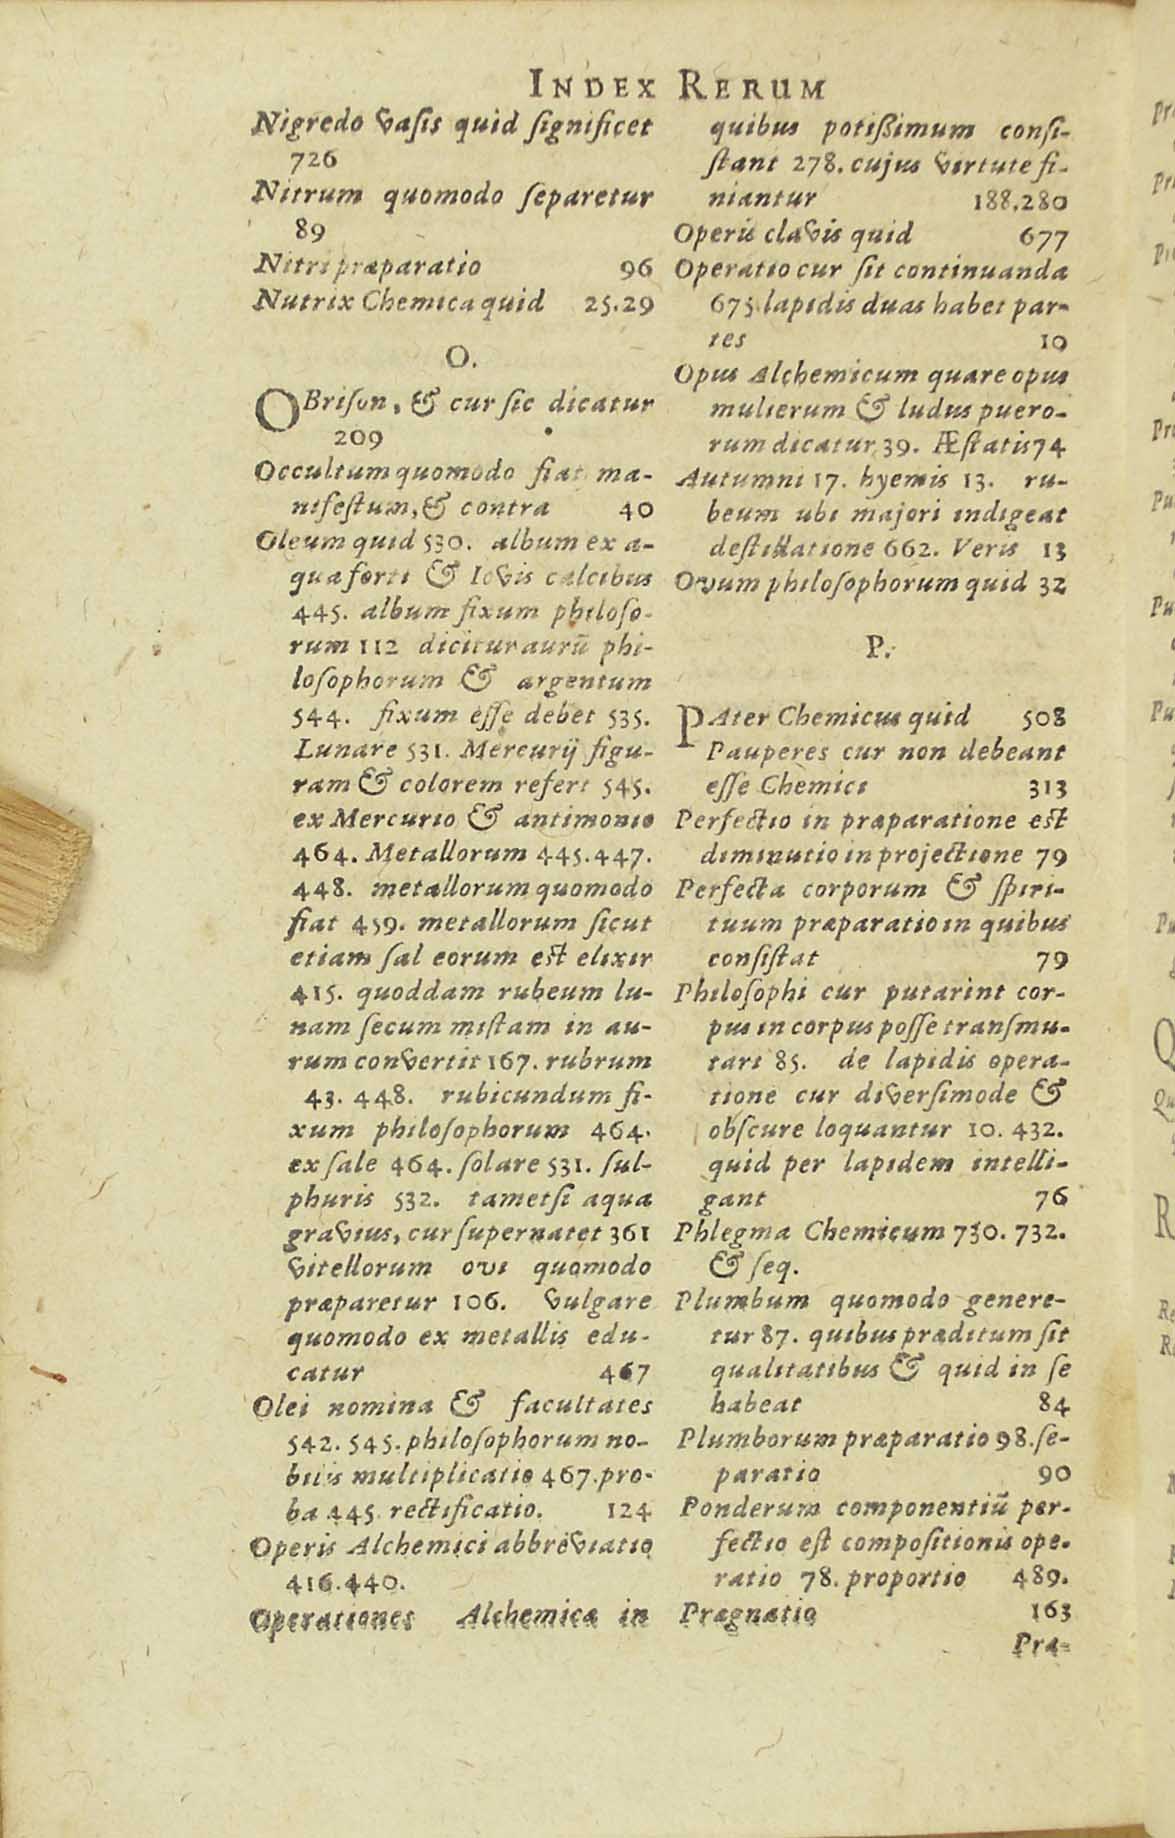 INDEX RERUM
Nigredo vasis quid significet
726
Nitrum quomodo separetur
89
Nitri præparatio 96
Nutrix Chemica quid 25.29
O.
OBrison, & cur sic dicatur
209
Occultum quomodo fiat ma-
nifestum, & contra 40
Oleum quid 530. album ex a-
qua forti & Iovis calcibus
445. album fixum philoso-
rum 112 dicitur aurū phi-
losophorum & argentum
544. fixum esse debet 535.
Lunare 531. Mercurij figu-
ram & colorem refert 545.
ex Mercurio & antimonio
464. Metallorum 445.447.
448. metallorum quomodo
fiat 459. metallorum sicut
etiam sal eorum est elixir
415. quoddam rubeum lu-
nam secum mistam in au-
rum convertit 167. rubrum
43. 448. rubicundum fi-
xum philosophorum 464.
ex sale 464. solare 531. sul-
phuris 532. tametsi aqua
gravius, cur supernatet 361
vitellorum ovi quomodo
præparetur 106. vulgare
quomodo ex metallis edu-
catur 467
Olei nomina & facultates
542. 545. philosophorum no-
bilis multiplicatio 467. pro-
ba 445. rectificatio. 124
Operis Alchemici abbreviatio
416.440.
Operationes Alchemicæ in
quibus potißimum consi-
stant 278. cujus virtute fi-
niantur 188.280
Operis clavis quid 677
Operatio cur sit continuanda
675. lapidis duas habet par-
tes 10
Opus Alchemicum quare opus
mulierum & ludus puero-
rum dicatur 39. Æstatis 74
Autumni 17. hyemis 13. ru-
beum ubi majori indigeat
destillatione 662. Veris 13
Ovum philosophorum quid 32
P.
PAter Chemicus quid 508
Pauperes cur non debeant
esse Chemici 313
Perfectio in præparatione est
diminutio in projectione 79
Perfecta corporum & spiri-
tuum præparatio in quibus
consistat 79
Philosophi cur putarint cor-
pus in corpus posse transmu-
tari 85. de lapidis opera-
tione cur diversimode &
obscure loquantur 10. 432.
quid per lapidem intelli-
gant 76
Phlegma Chemicum 730. 732.
& seq.
Plumbum quomodo genere-
tur 87. quibus præditum sit
qualitatibus & quid in se
habeat 84
Plumborum præparatio 98. se-
paratio 90
Ponderum componentiū per-
fectio est compositionis ope-
ratio 78. proportio 489.
Prægnatio 163
Præ-